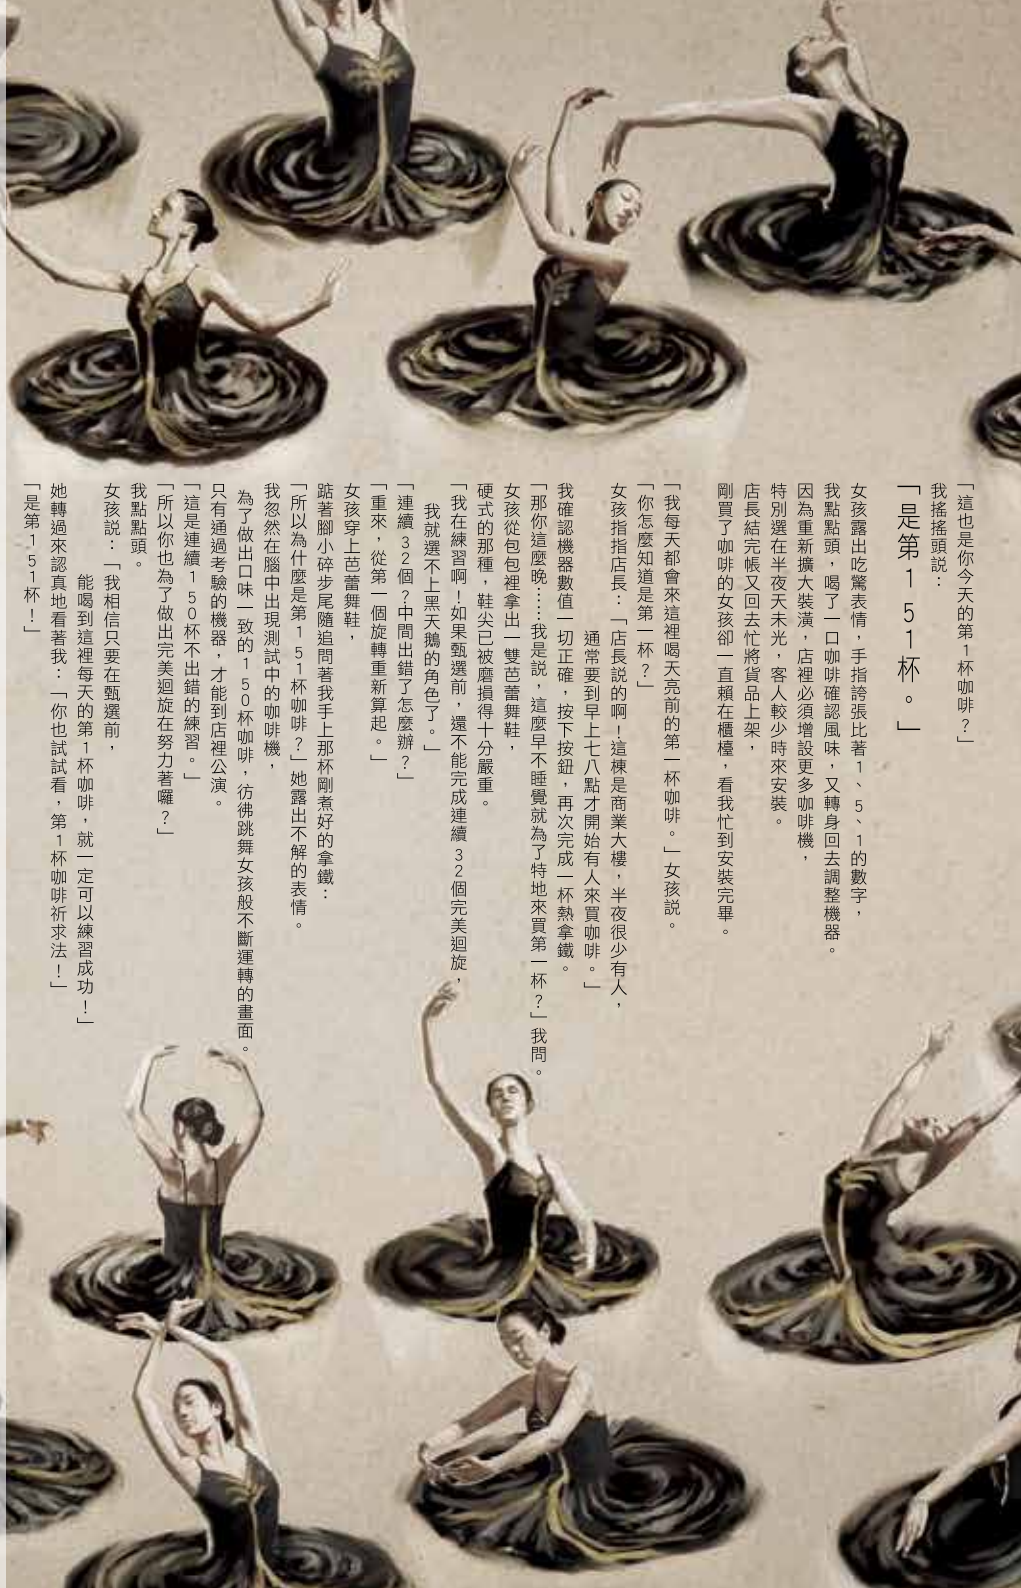 「這也是你今天的第1杯咖啡？」
我搖搖頭說：
「是第151杯。」
女孩露出吃驚表情，手指誇張比著1、5、1的數字，
我點點頭，喝了一口咖啡確認風味，又轉身回去調整機器。
因為重新擴大裝潢，店裡必須增設更多咖啡機，
特別選在半夜天未光，客人較少時來安裝。
店長結完帳又回去忙將貨品上架，
剛買了咖啡的女孩卻一直賴在櫃檯，看我忙到安裝完畢。
「我每天都會來這裡喝天亮前的第一杯咖啡。」女孩說。
「你怎麼知道是第一杯？」
女孩指指店長：「店長說的啊！這棟是商業大樓，半夜很少有人，
通常要到早上七八點才開始有人來買咖啡。」
我確認機器數值一切正確，按下按鈕，再次完成一杯熱拿鐵。
「那你這麼晚……我是說，這麼早不睡覺就為了特地來買第一杯？」我問。
女孩從包包裡拿出一雙芭蕾舞鞋，
硬式的那種，鞋尖已被磨損得十分嚴重。
「我在練習啊！如果甄選前，還不能完成連續32個完美迴旋，
我就選不上黑天鵝的角色了。」
「連續32個？中間出錯了怎麼辦？」
「重來，從第一個旋轉重新算起。」
女孩穿上芭蕾舞鞋，
踮著腳小碎步尾隨追問著我手上那杯剛煮好的拿鐵：
「所以為什麼是第151杯咖啡？」她露出不解的表情。
我忽然在腦中出現測試中的咖啡機，
為了做出口味一致的150杯咖啡，彷彿跳舞女孩般不斷運轉的畫面。
只有通過考驗的機器，才能到店裡公演。
「這是連續150杯不出錯的練習。」
「所以你也為了做出完美迴旋在努力著囉？」
我點點頭。
女孩說：「我相信只要在甄選前，
能喝到這裡每天的第1杯咖啡，就一定可以練習成功！」
她轉過來認真地看著我：「你也試試看，第1杯咖啡祈求法！」
「是第151杯！」